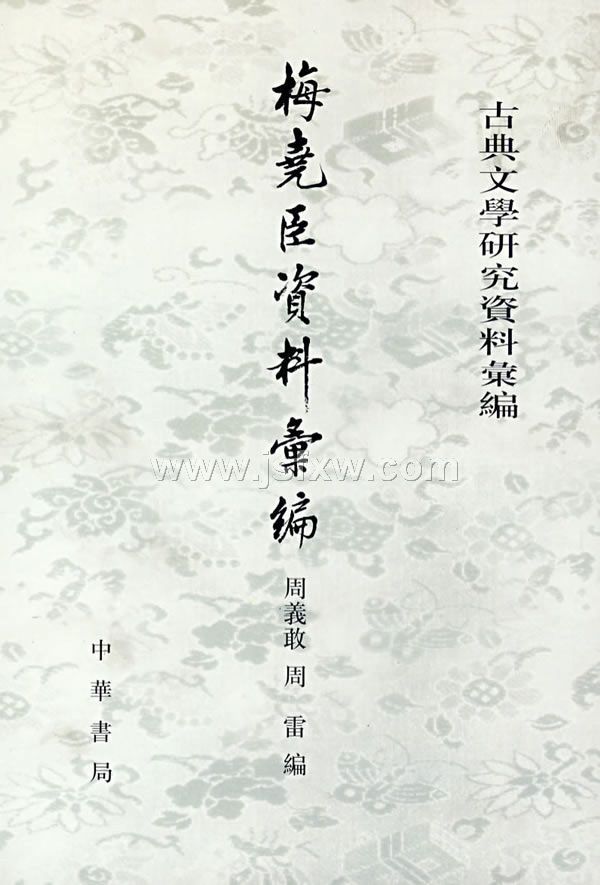 古典文學研究資料彙編
梅堯臣資料彙編
周義敢 周雷編
中華書局
www.jsfxw.com